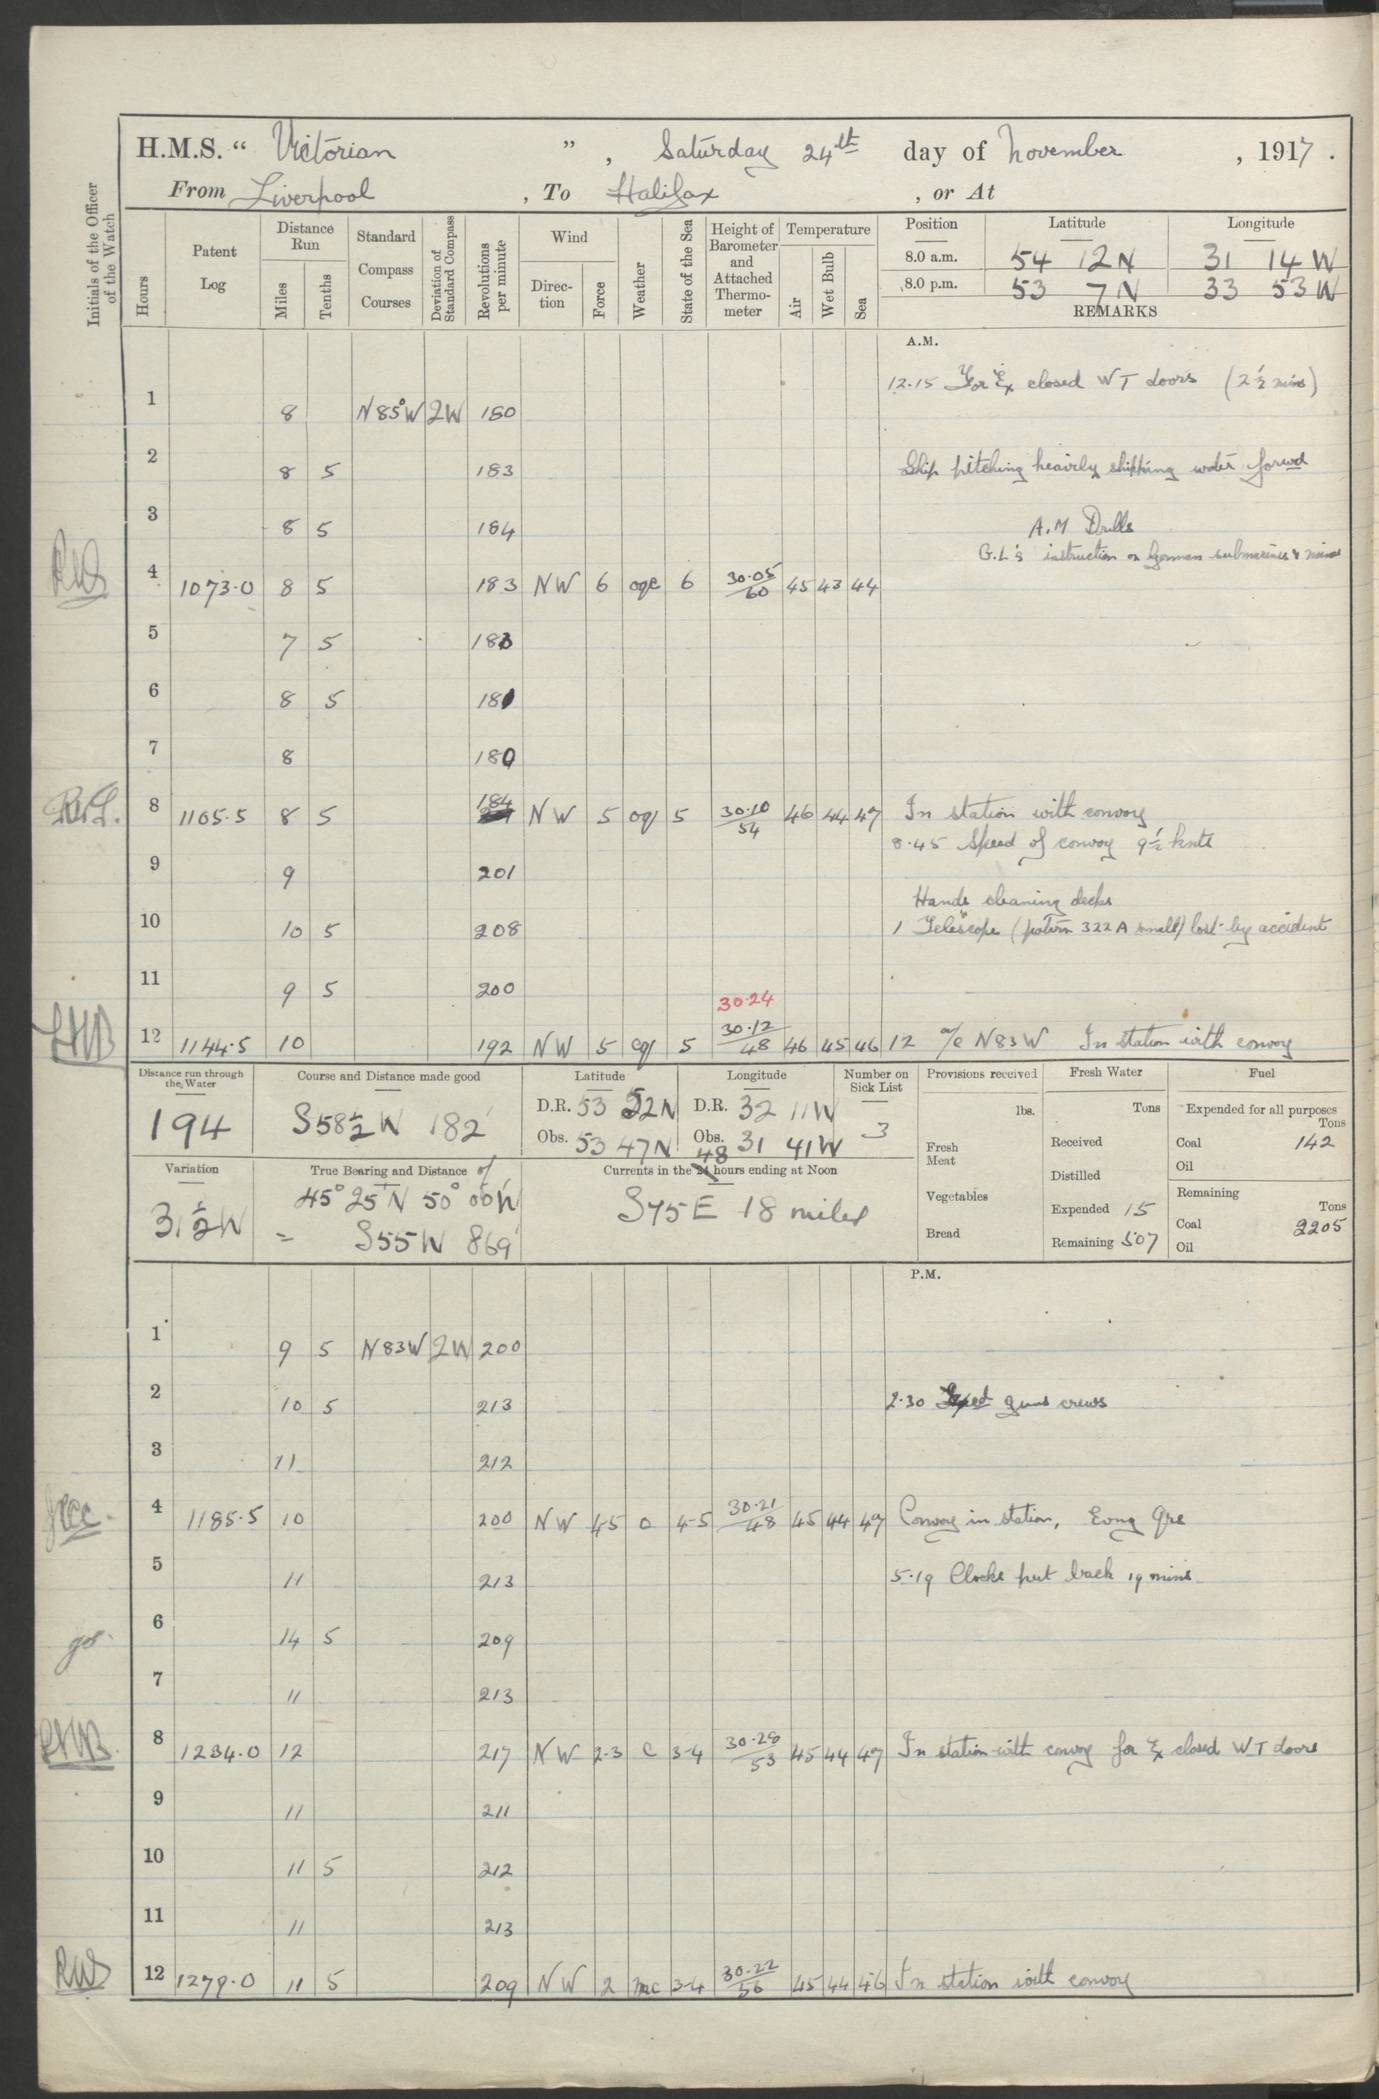 H.M.S. " Victorian " , Saturday 24th day of November , 1917 .
From Liverpool , To Halifax , or At
Initials of the Officer of the Watch
Hours Patent Log Distance Run Miles Tenths Standard Compass Courses Deviation of Standard Compass Revolutions per minute Wind Direction Force Weather State of the Sea Height of Barometer and Attached Thermometer Temperature Air Wet Bulb Sea
Position Latitude Longitude
8.0 a.m. 54 12 N 31 14 W
8.0 p.m. 53 7 N 33 53 W
REMARKS
A.M.
12.15 For Ex closed W T doors (2½ mins)
1 8 N 85° W 2W 180
2 8 5 183 Ship pitching heavily shipping water forwd
3 8 5 184 A.M Drills
G.L's instruction on German submarines & mines
4 1073.0 8 5 183 NW 6 oqc 6 30.05/60 45 43 44
5 7 5 183
6 8 5 181
7 8 180
8 1105.5 8 5 184 NW 5 oq 5 30.10/54 46 44 47 In station with convoy
8.45 Speed of convoy 9½ knts
9 9 201
Hands cleaning decks
10 10 5 208 1 Telescope (pattern 322 A small) lost by accident
11 9 5 200
30.24
12 1144.5 10 192 NW 5 cq 5 30.12/48 46 45 46 12 a/c N 83 W In station with convoy
Distance run through the Water 194
Course and Distance made good S58½W 182'
Latitude D.R. 53 52 N Obs. 53 47 N
Longitude D.R. 32 11 W Obs. 31 41 W
Number on Sick List 3
Provisions received lbs.
Fresh Meat
Vegetables
Bread
Fresh Water Tons
Received
Distilled
Expended 15
Remaining 507
Fuel
Expended for all purposes Tons
Coal 142
Oil
Remaining Tons
Coal 2205
Oil
Variation 31½W
True Bearing and Distance of
45° 25' N 50° 00' W
= S55W 869'
Currents in the 24 48 hours ending at Noon
S75E 18 miles
P.M.
1 9 5 N 83 W 2W 200
2 10 5 213 2.30 guns crews
3 11 212
4 1185.5 10 200 NW 4-5 o 4-5 30.21/48 45 44 47 Convoy in station, Evng Qrs
5 11 213 5.19 Clocks put back 19 mins
6 14 5 209
7 11 213
8 1234.0 12 217 NW 2-3 c 3-4 30.28/53 45 44 47 In station with convoy for Ex closed W.T doors
9 11 211
10 11 5 212
11 11 213
12 1279.0 11 5 209 NW 2 mc 3-4 30.22/56 45 44 46 In station with convoy